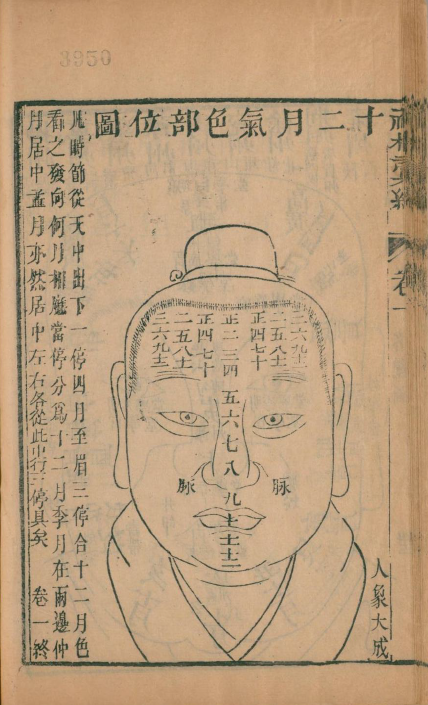 3950
神相彙編
卷一
十二月氣色部位圖
三六九十二
二五八十一
正四七十
正二三四五六七八九十十一十二
正四七十
二五八十一
三六九十二
脉
脉
人象大成
凡時節從天中出下一停四月至眉三停合十二月色
看之發向何月相應當停分爲十二月季月在兩邊仲
月居中孟月亦然居中左右各從此中行三停具矣
卷一終